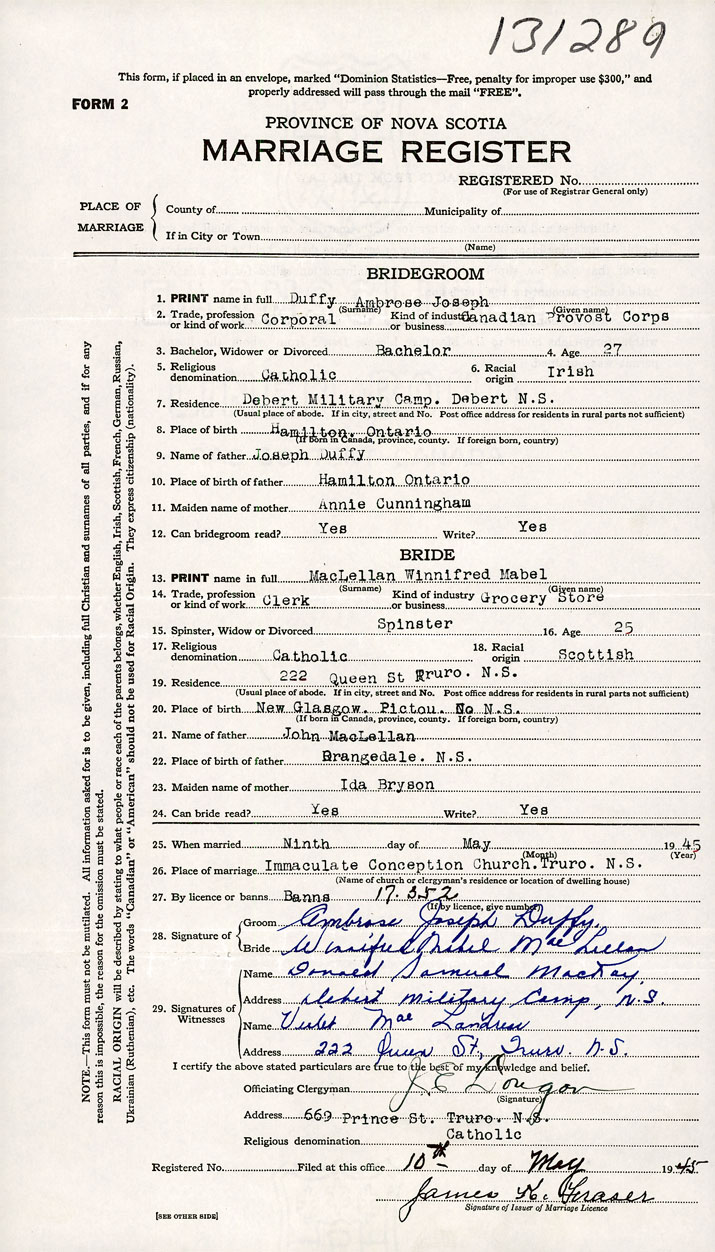 131289
This form, if placed in an envelope, marked "Dominion Statistics—Free, penalty for improper use $300," and
properly addressed will pass through the mail "FREE".
FORM 2
PROVINCE OF NOVA SCOTIA
MARRIAGE REGISTER
REGISTERED No.
(For use of Registrar General only)
PLACE OF MARRIAGE
County of Municipality of
If in City or Town
(Name)
BRIDEGROOM
1. PRINT name in full Duffy Ambrose Joseph
(Surname) (Given name)
2. Trade, profession or kind of work Corporal Kind of industry or business Canadian Provost Corps
3. Bachelor, Widower or Divorced Bachelor 4. Age 27
5. Religious denomination Catholic 6. Racial origin Irish
7. Residence Debert Military Camp. Debert N.S.
(Usual place of abode. If in city, street and No. Post office address for residents in rural parts not sufficient)
8. Place of birth Hamilton. Ontario
(If born in Canada, province, county. If foreign born, country)
9. Name of father Joseph Duffy
10. Place of birth of father Hamilton Ontario
11. Maiden name of mother Annie Cunningham
12. Can bridegroom read? Yes Write? Yes
BRIDE
13. PRINT name in full MacLellan Winnifred Mabel
(Surname) (Given name)
14. Trade, profession or kind of work Clerk Kind of industry or business Grocery Store
15. Spinster, Widow or Divorced Spinster 16. Age 25
17. Religious denomination Catholic 18. Racial origin Scottish
19. Residence 222 Queen St Truro. N.S.
(Usual place of abode. If in city, street and No. Post office address for residents in rural parts not sufficient)
20. Place of birth New Glasgow. Pictou. N.S.
(If born in Canada, province, county. If foreign born, country)
21. Name of father John MacLellan
22. Place of birth of father Orangedale. N.S.
23. Maiden name of mother Ida Bryson
24. Can bride read? Yes Write? Yes
25. When married Ninth day of May 1945
(Month) (Year)
26. Place of marriage Immaculate Conception Church. Truro. N.S.
(Name of church or clergyman's residence or location of dwelling house)
27. By licence or banns Banns 17.352
(If by licence, give number)
28. Signature of
Groom Ambrose Joseph Duffy.
Bride Winnifred Mabel MacLellan
29. Signatures of Witnesses
Name Donald Samuel MacKay
Address Debert Military Camp, N.S.
Name Violet Mae Landres
Address 222 Queen St., Truro. N.S.
I certify the above stated particulars are true to the best of my knowledge and belief.
Officiating Clergyman J.E.
(Signature)
Address 669 Prince St. Truro. N.S.
Religious denomination Catholic
Registered No. Filed at this office 10th day of May 1945
James K. Fraser
Signature of Issuer of Marriage Licence
[SEE OTHER SIDE]
NOTE.—This form must not be mutilated. All information asked for is to be given, including full Christian and surnames of all parties, and if for any
reason this is impossible, the reason for the omission must be stated.
RACIAL ORIGIN will be described by stating to what people or race each of the parents belongs, whether English, Irish, Scottish, French, German, Russian,
Ukrainian (Ruthenian), etc. The words "Canadian" or "American" should not be used for Racial Origin. They express citizenship (nationality).